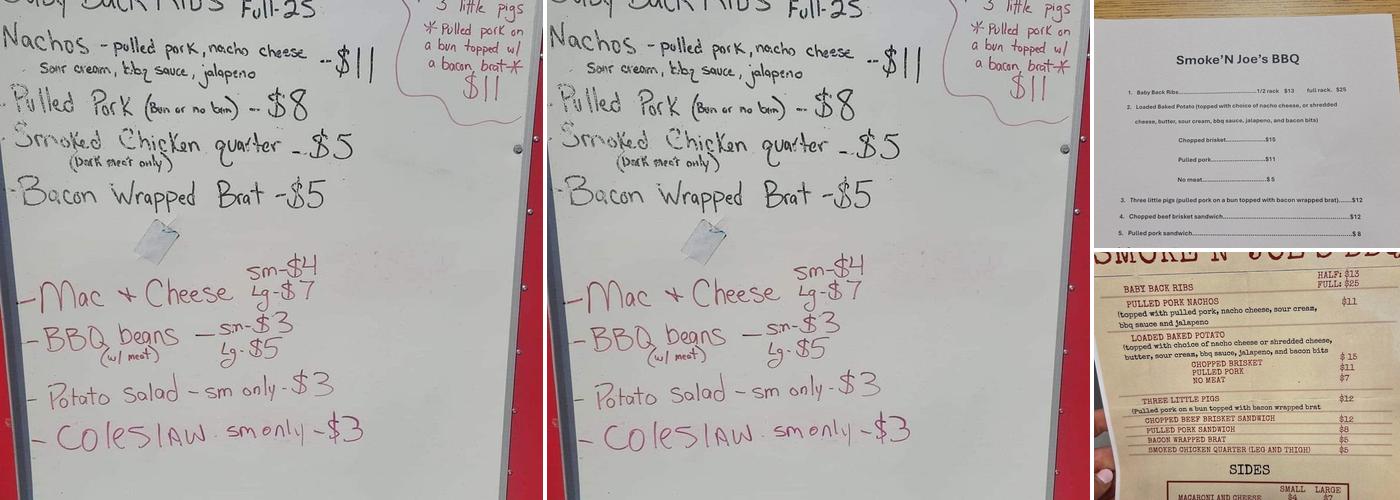 Baby Back Ribs Full-25
Nachos - pulled pork, nacho cheese --$11
sour cream, bbq sauce, jalapeno
- Pulled Pork (Bun or no bun) -- $8
- Smoked Chicken quarter -- $5
(Dark meat only)
- Bacon Wrapped Brat - $5
3 little pigs
* Pulled pork on
a bun topped w/
a bacon brat *
$11
- Mac + Cheese sm-$4
Lg-$7
- BBQ beans - sm-$3
(w/ meat) Lg-$5
- Potato Salad - sm only - $3
- Coleslaw sm only - $3
Baby Back Ribs Full-25
Nachos - pulled pork, nacho cheese --$11
sour cream, bbq sauce, jalapeno
- Pulled Pork (Bun or no bun) -- $8
- Smoked Chicken quarter -- $5
(Dark meat only)
- Bacon Wrapped Brat - $5
3 little pigs
* Pulled pork on
a bun topped w/
a bacon brat *
$11
- Mac + Cheese sm-$4
Lg-$7
- BBQ beans - sm-$3
(w/ meat) Lg-$5
- Potato Salad - sm only - $3
- Coleslaw sm only - $3
Smoke'N Joe's BBQ
1. Baby Back Ribs.......................................1/2 rack $13 full rack. $25
2. Loaded Baked Potato (topped with choice of nacho cheese, or shredded
cheese, butter, sour cream, bbq sauce, jalapeno, and bacon bits)
Chopped brisket....................$15
Pulled pork.......................$11
No meat..........................$ 5
3. Three little pigs (pulled pork on a bun topped with bacon wrapped brat)......$12
4. Chopped beef brisket sandwich..................................................$12
5. Pulled pork sandwich...........................................................$ 8
SMOKE'N JOE'S BBQ
BABY BACK RIBS HALF: $13
FULL: $25
PULLED PORK NACHOS $11
(topped with pulled pork, nacho cheese, sour cream,
bbq sauce and jalapeno
LOADED BAKED POTATO
(topped with choice of nacho cheese or shredded cheese,
butter, sour cream, bbq sauce, jalapeno, and bacon bits
CHOPPED BRISKET $15
PULLED PORK $11
NO MEAT $7
THREE LITTLE PIGS $12
(Pulled pork on a bun topped with bacon wrapped brat
CHOPPED BEEF BRISKET SANDWICH $12
PULLED PORK SANDWICH $8
BACON WRAPPED BRAT $5
SMOKED CHICKEN QUARTER (LEG AND THIGH) $5
SIDES
SMALL LARGE
MACARONI AND CHEESE $4 $7